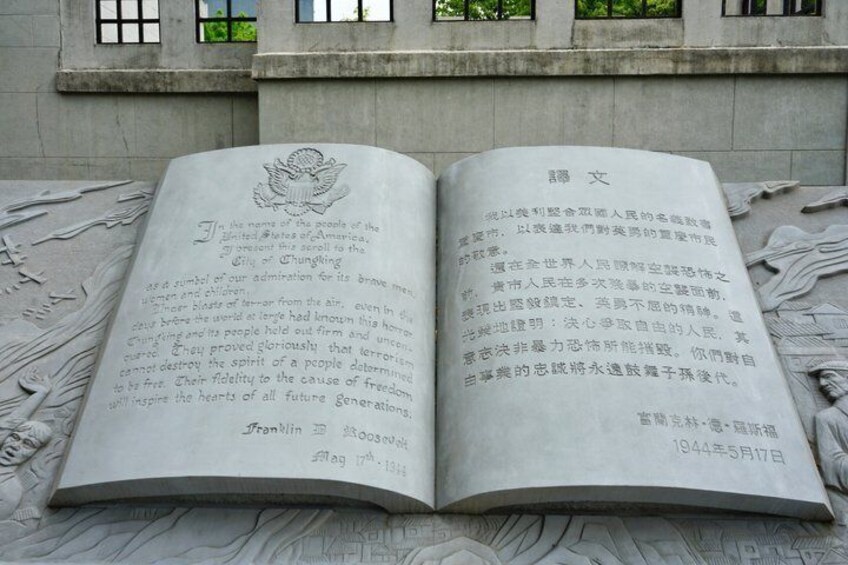 In the name of the people of the
United States of America,
I present this scroll to the
City of Chungking
as a symbol of our admiration for its brave men,
women and children.
Under blasts of terror from the air, even in the
days before the world at large had known this horror
Chungking and its people held out firm and uncon-
quered. They proved gloriously that terrorism
cannot destroy the spirit of a people determined
to be free. Their fidelity to the cause of freedom
will inspire the hearts of all future generations.
Franklin D Roosevelt
May 17th, 1944
譯文
我以美利堅合眾國人民的名義致書
重慶市，以表達我們對英勇的重慶市民
的敬意。
還在全世界人民諒解空襲恐怖之
前，貴市人民在多次殘暴的空襲面前，
表現出堅毅鎮定、英勇不屈的精神。這
光榮地證明：決心爭取自由的人民，其
意志決非暴力恐怖所能摧毀。你們對自
由事業的忠誠將永遠鼓舞子孫後代。
富蘭克林·德·羅斯福
1944年5月17日